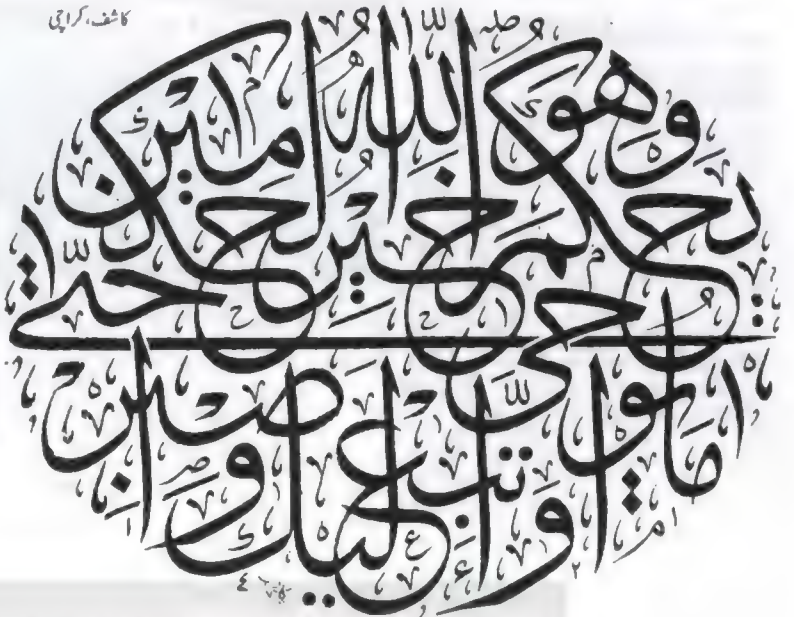 کاشف، کراچی
واتبع ما يوحى إليك واصبر
حتى يحكم الله وهو خير الحكمين